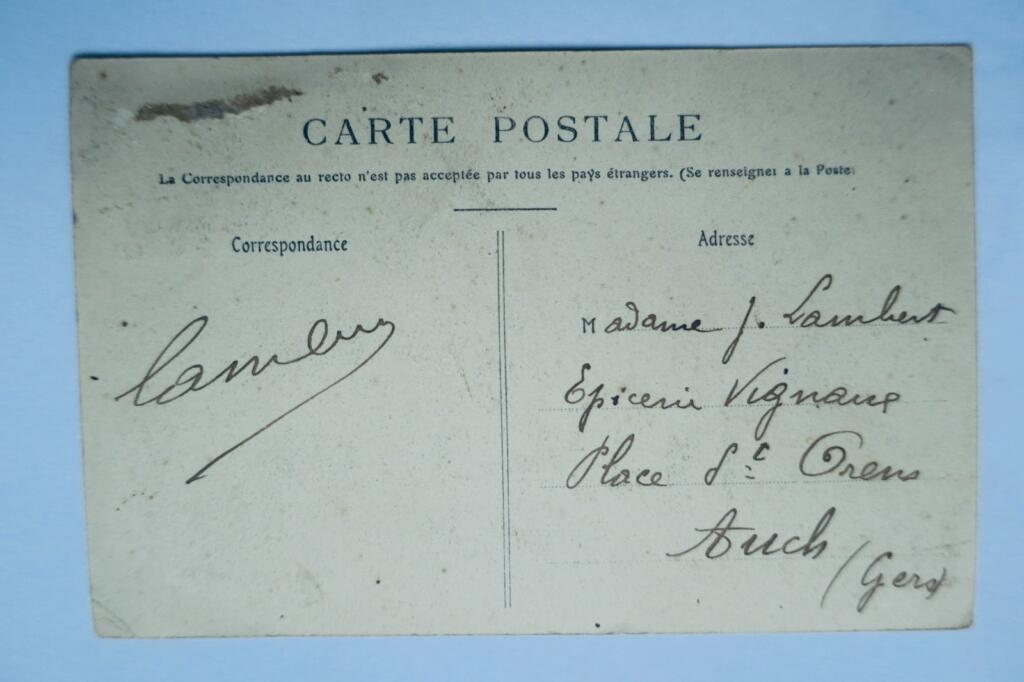 CARTE POSTALE
La Correspondance au recto n'est pas acceptée par tous les pays étrangers. (Se renseigner a la Poste
Correspondance
Adresse
Madame J. Lambert
Epicerie Vignaux
Place St Orens
Auch
(Gers)